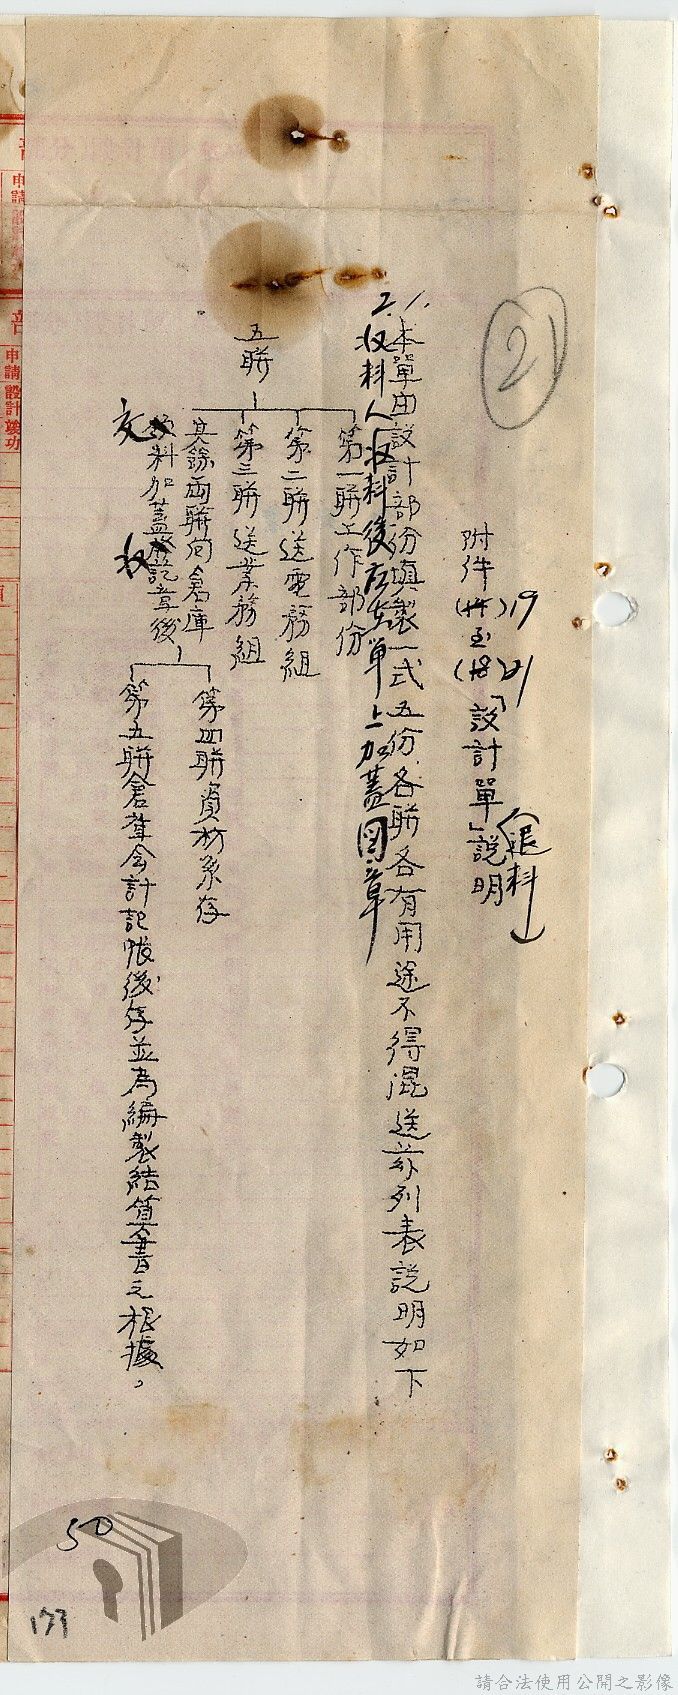 21
附件(卅)19至(卅)21「設計單」說明
(退料)
1.本單由設計部份填製一式五份各聯各有用途不得混送茲列表說明如下
2.收料人收料後应在單上加蓋圖章
五聯
第一聯工作部份
第二聯送電務組
第三聯送業務組
其餘兩聯向倉庫
交料加蓋收訖章後
第四聯資材系存
第五聯倉庫會計記帳後存並為編製結算書之根據。
申請
申請 設計 竣功
50
173
請合法使用公開之影像